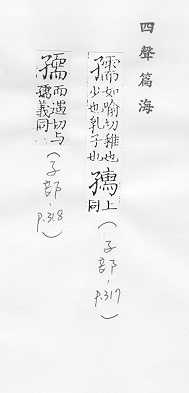 四聲篇海
孺如喻切稚也
少也乳子也
上同
(子部,p.317)
而遇切与
義同
(子部,p.318)